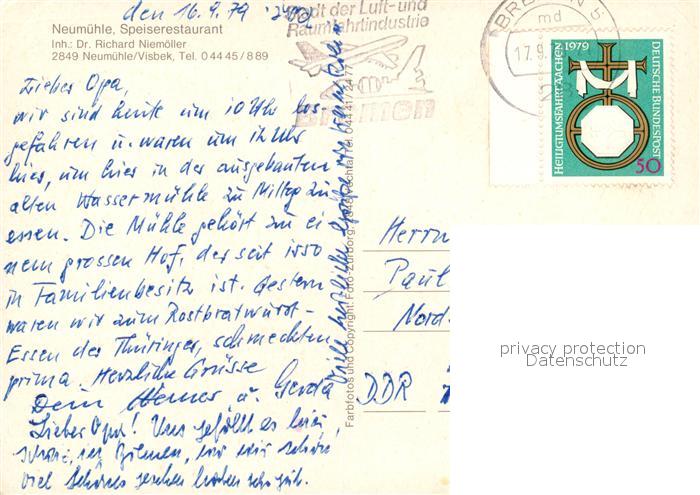 den 16.9.79
Neumühle, Speiserestaurant
Inh.: Dr. Richard Niemöller
2849 Neumühle/Visbek, Tel. 0 44 45 / 8 89
Lieber Opa,
wir sind heute um 10 Uhr los-
gefahren u. waren um 12 Uhr
hier, um hier in der ausgebauten
alten Wassermühle zu Mittag zu
essen. Die Mühle gehört zu ei
nem grossen Hof, der seit 1550
in Familienbesitz ist. Gestern
waren wir zum Rostbratwurst-
Essen der Thüringer, schmeckten
prima. Herzliche Grüsse
Dein Werner u. Gerda
Lieber Opa! Uns gefällt es hier,
viel Schönes gesehen haben
Viele herzliche Grüße
Farbfotos und Copyright: Foto-Zurborg,
Stadt der Luft- und
Raumfahrtindustrie
Bremen
BREMEN 5
md
17.9.
HEILIGTUMSFAHRT AACHEN 1979
DEUTSCHE BUNDESPOST
50
Herrn
Paul
Nord-
DDR
privacy protection
Datenschutz